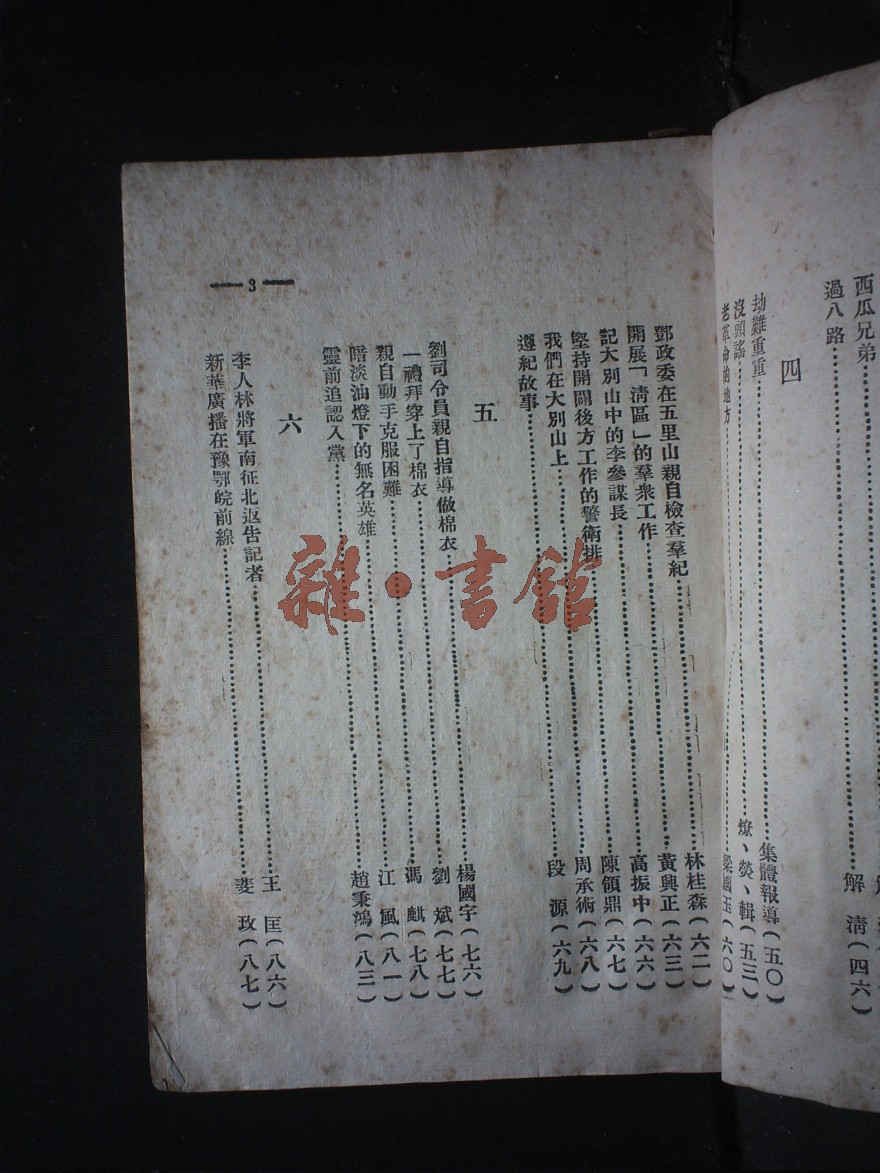 西瓜兄弟
過八路………解 清(四六)
四
劫難重重………集體報導(五〇)
沒頭謠………燎、熒、輯(五三)
老革命的地方………梁國玉(六〇)
鄧政委在五里山親自檢查羣紀………林桂森(六二)
開展「清區」的羣衆工作………黃興正(六三)
記大別山中的李參謀長………高振中(六六)
堅持開闢後方工作的警衛排………陳領鼎(六七)
我們在大別山上………周承術(六八)
遵紀故事………段 源(六九)
五
劉司令員親自指導做棉衣………楊國宇(七六)
一禮拜穿上了棉衣………劉 斌(七七)
親自動手克服困難………馮 麒(七八)
暗淡油燈下的無名英雄………江 風(八一)
靈前追認入黨………趙秉鴻(八三)
六
李人林將軍南征北返告記者………王 匡(八六)
新華廣播在豫鄂皖前線………(八七)
—3—
雜·書館